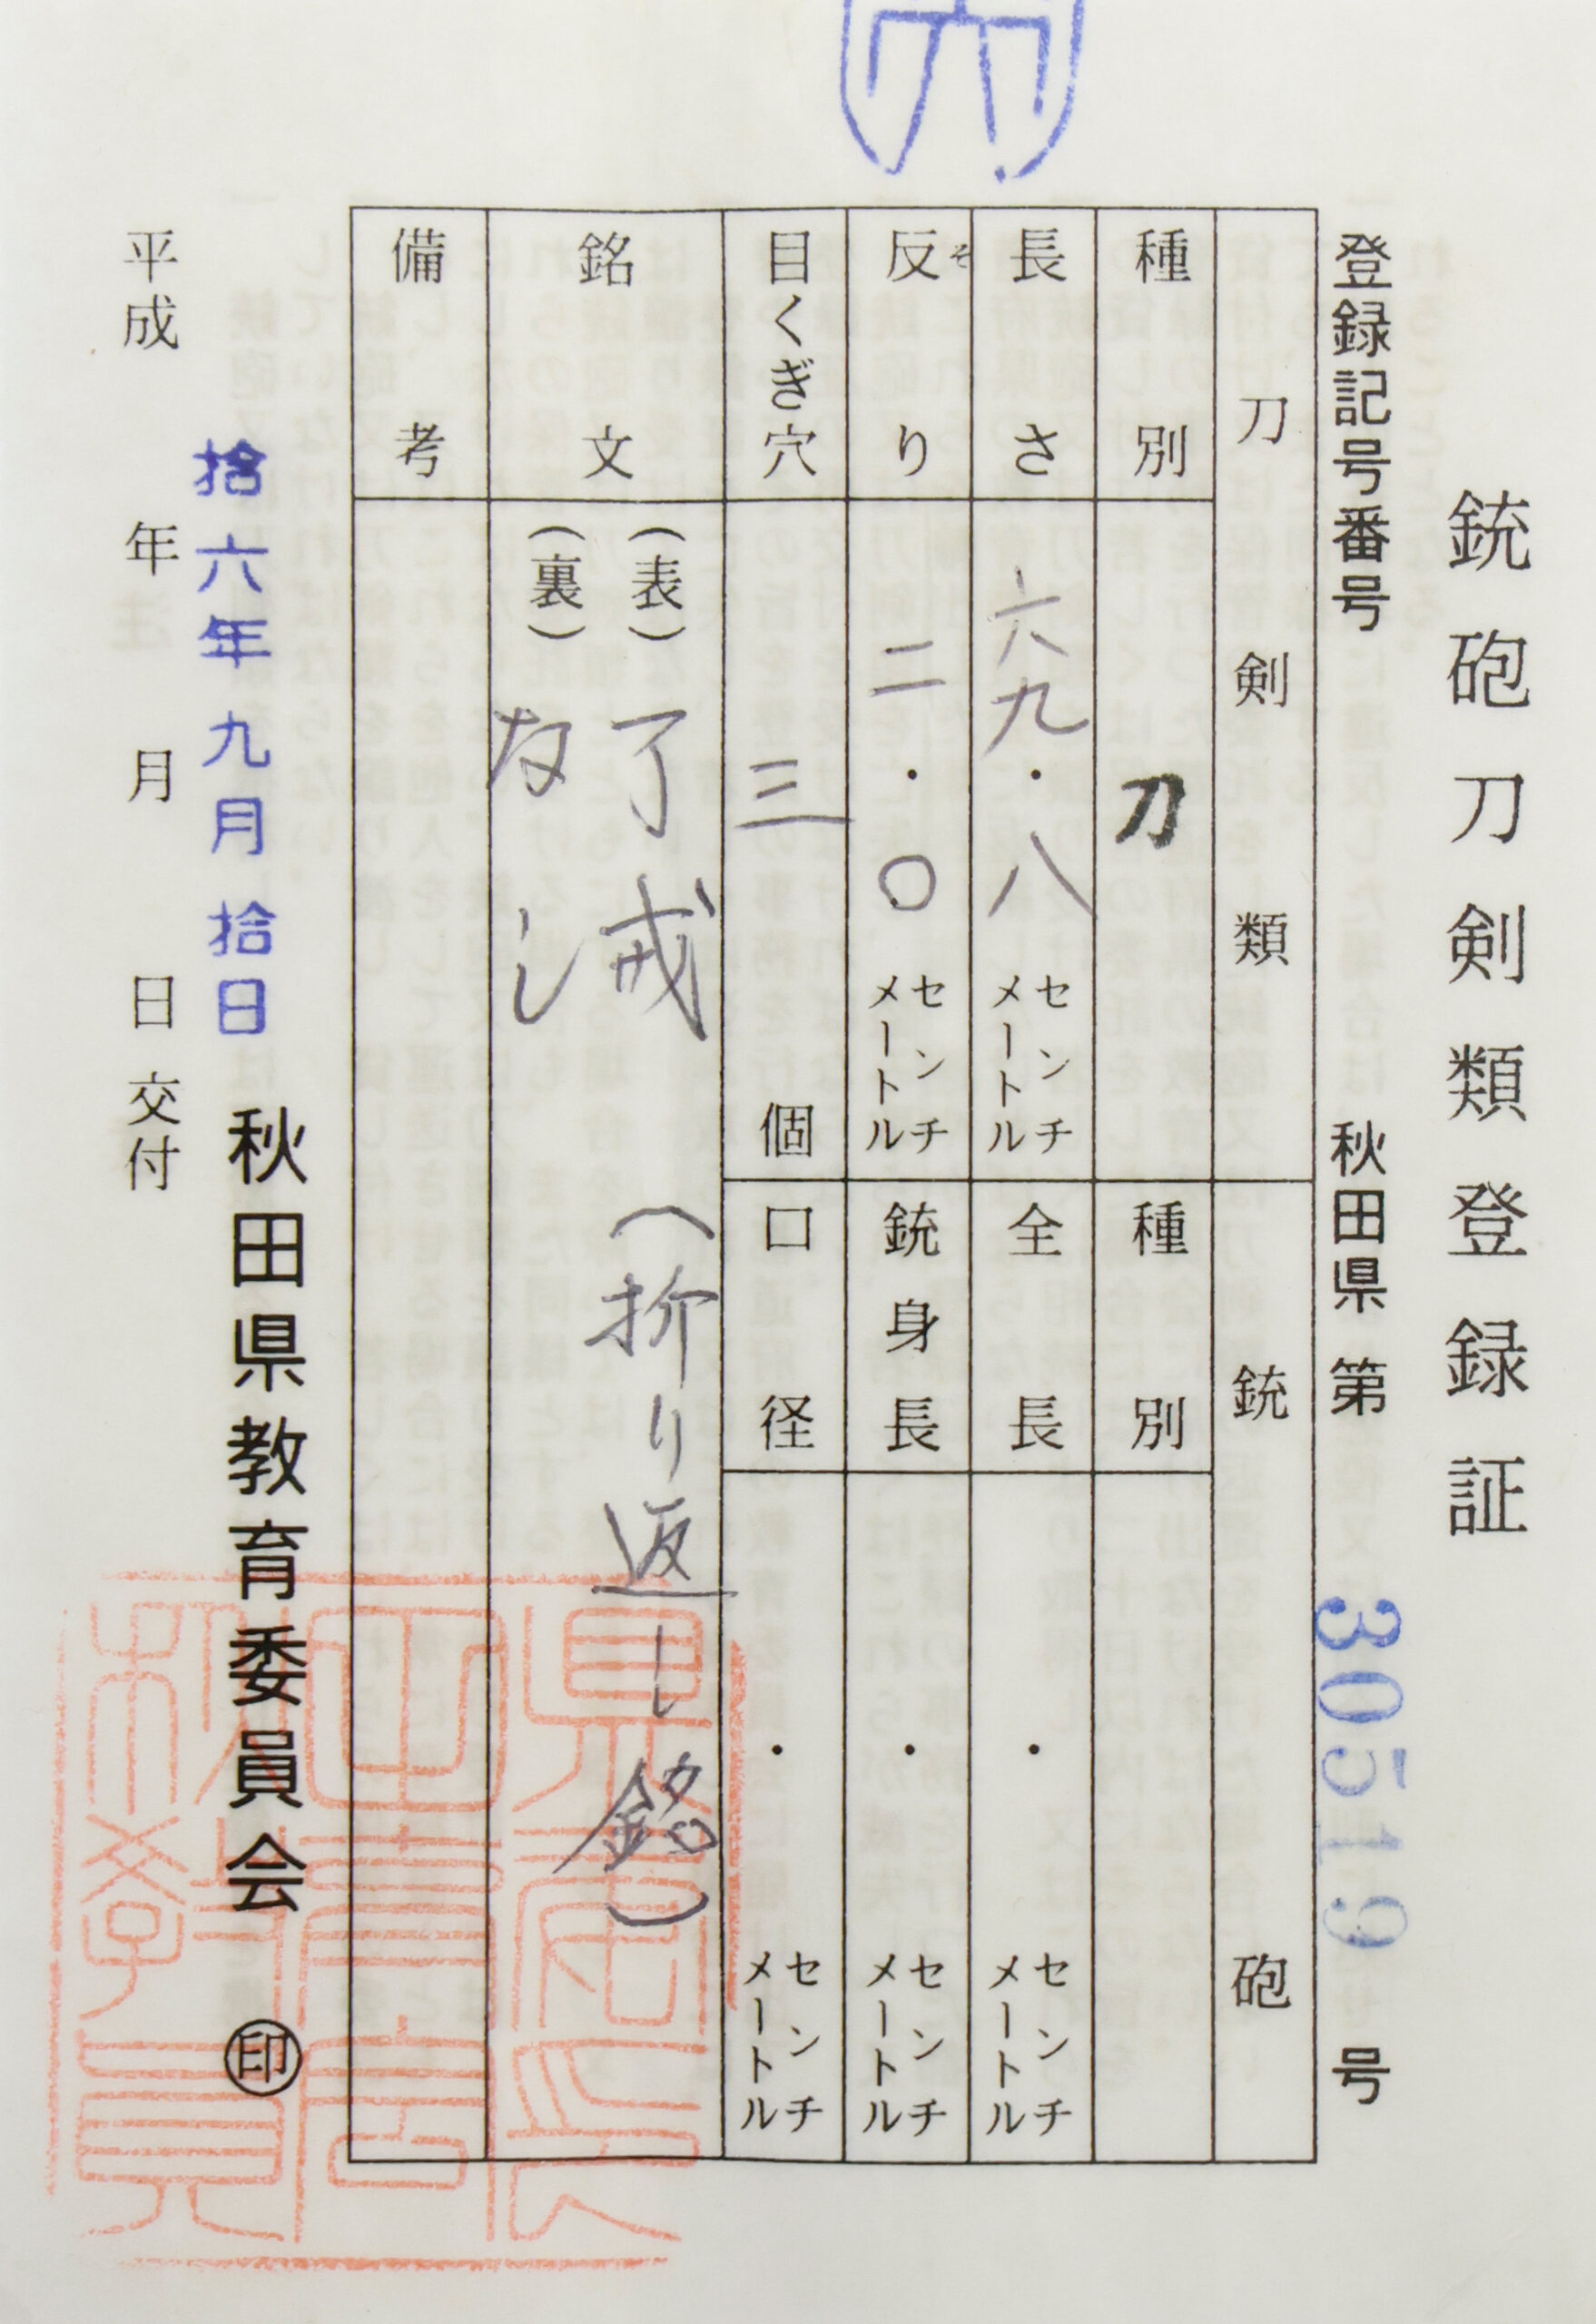 銃砲刀剣類登録証
登録記号番号 秋田県 第 30519 号
刀剣類
種別 刀
長さ 六九・八 センチメートル
反り そ 二・〇 センチメートル
目くぎ穴 三 個
銃砲
種別
全長 ・ センチメートル
銃身長 ・ センチメートル
口径 ・ センチメートル
銘文 (表) 了戒 (折り返し銘)
(裏) なし
備考
拾六年九月拾日 秋田県教育委員会 ㊞
平成 年 月 日交付